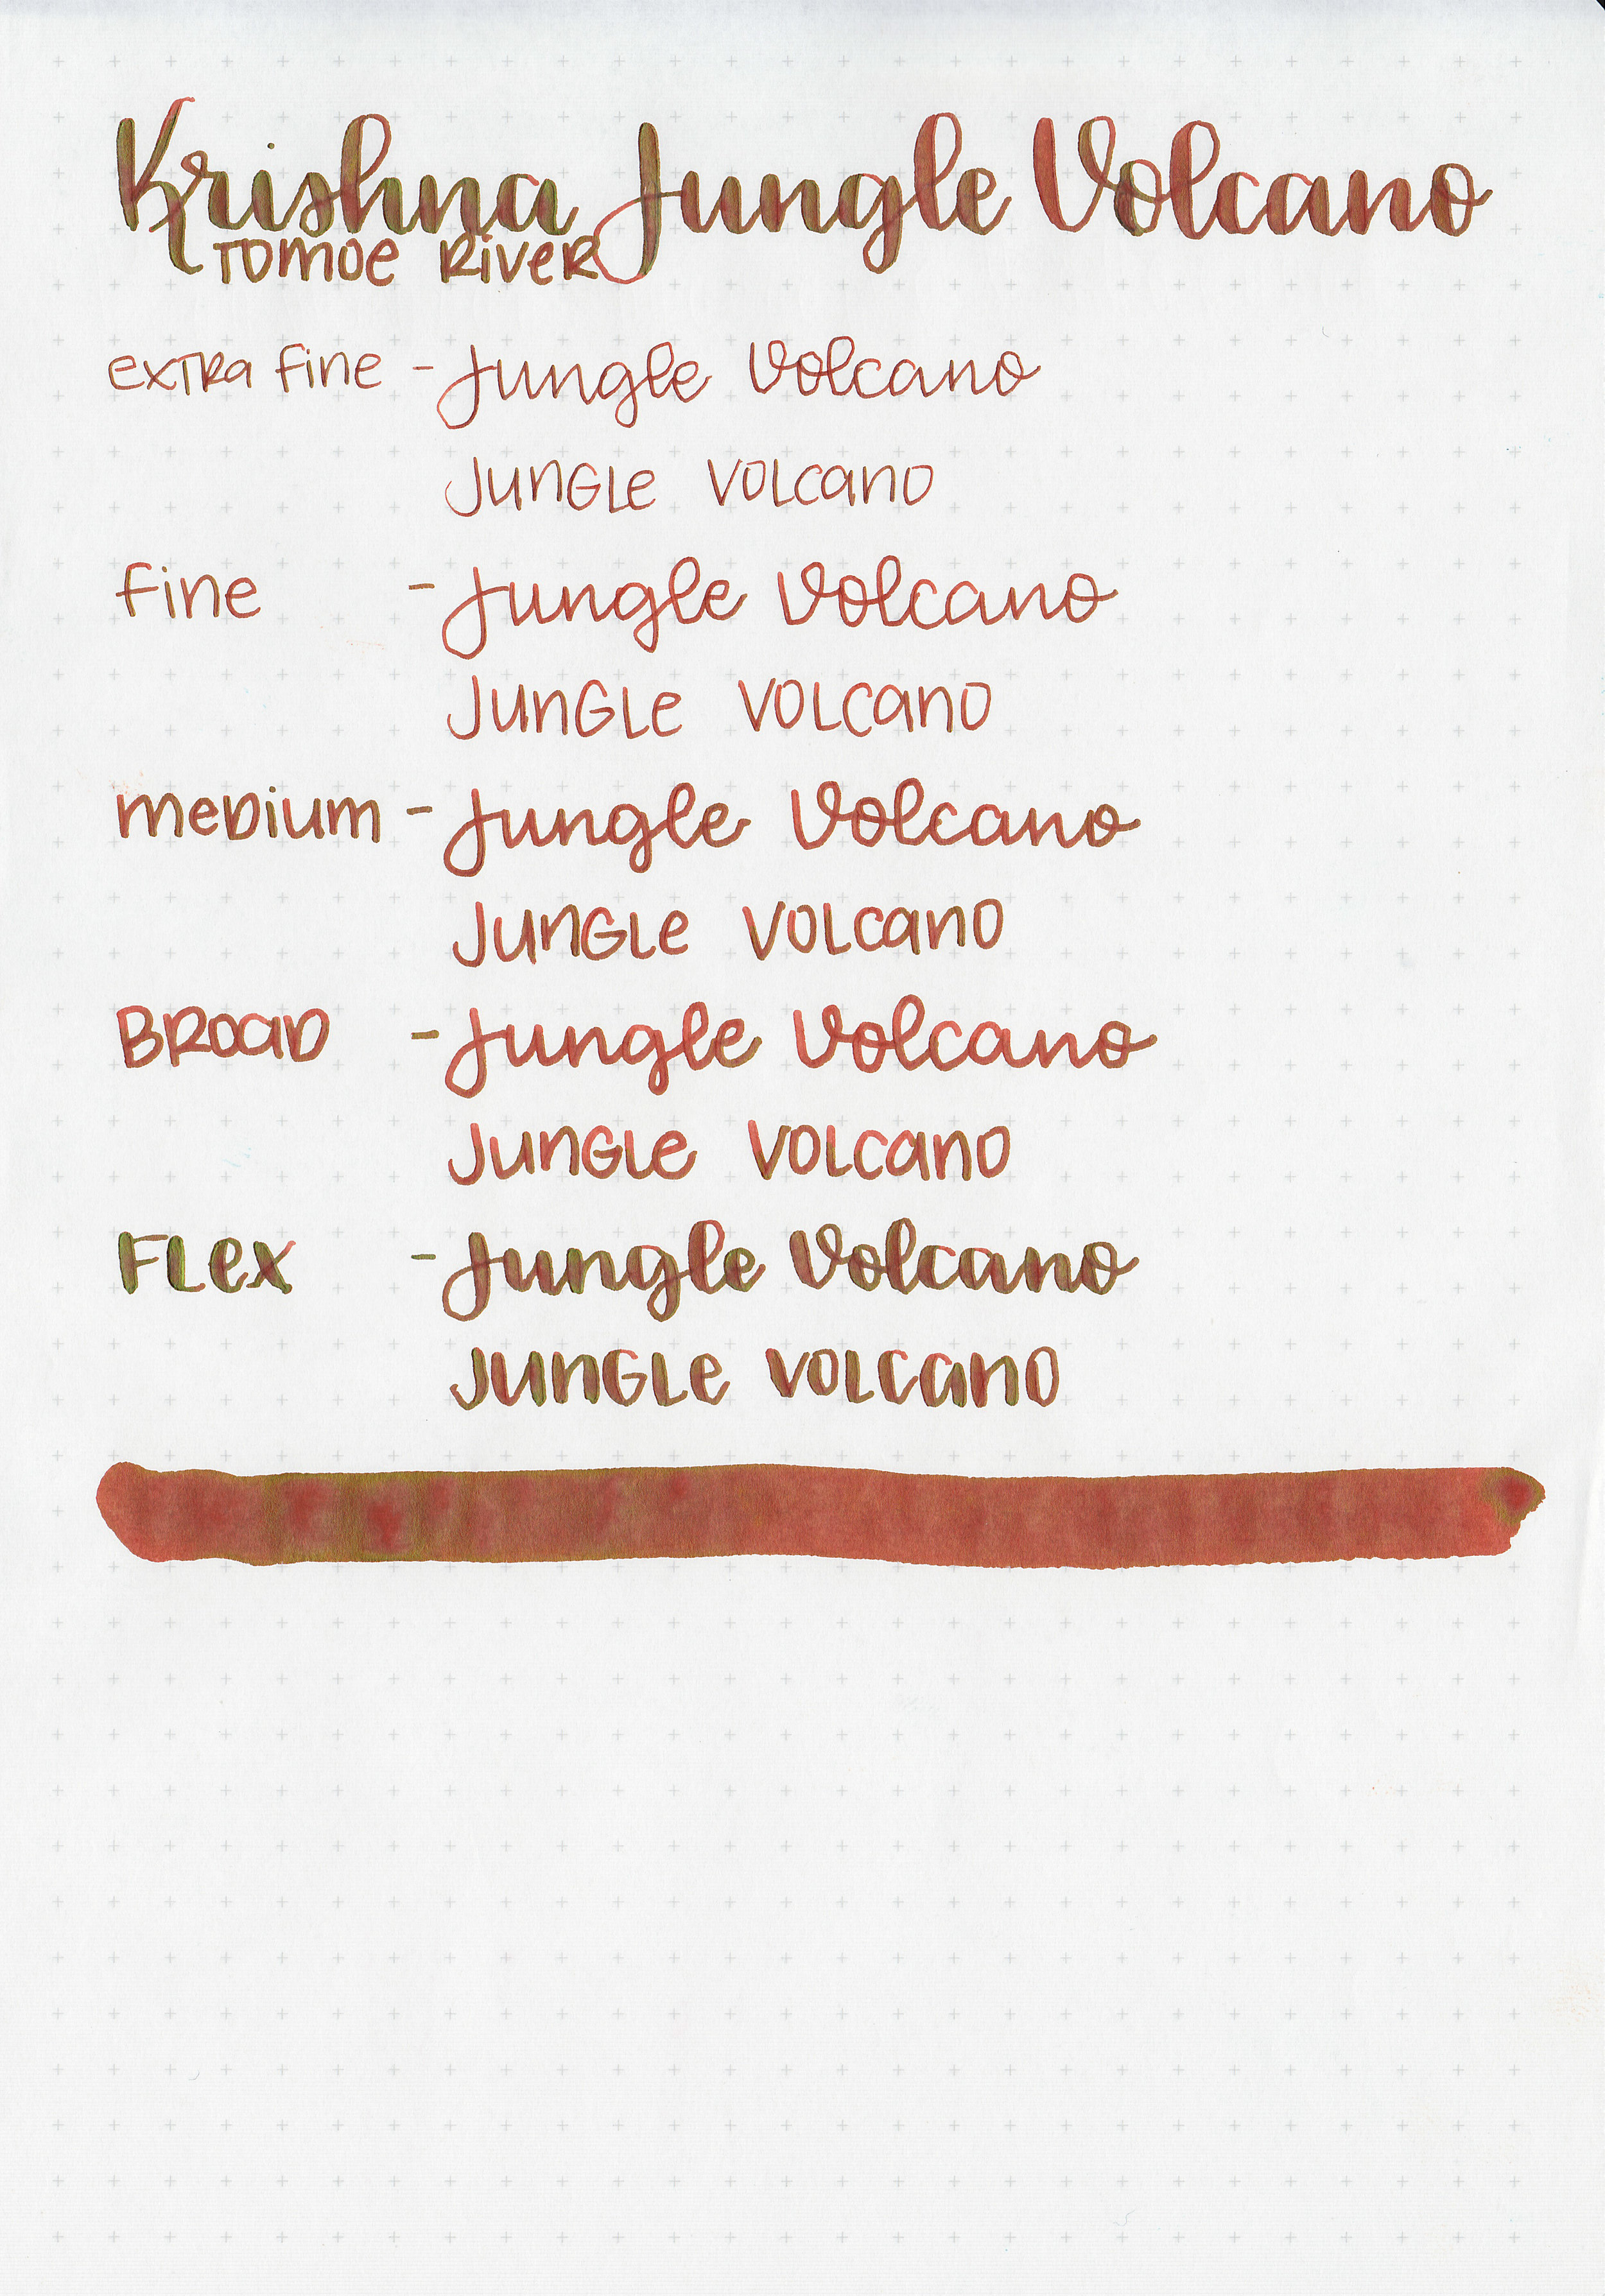 Krishna Jungle Volcano
Tomoe River
extra fine - Jungle Volcano
Jungle Volcano
fine - Jungle Volcano
Jungle Volcano
medium - Jungle Volcano
Jungle Volcano
Broad - Jungle Volcano
Jungle Volcano
Flex - Jungle Volcano
Jungle Volcano